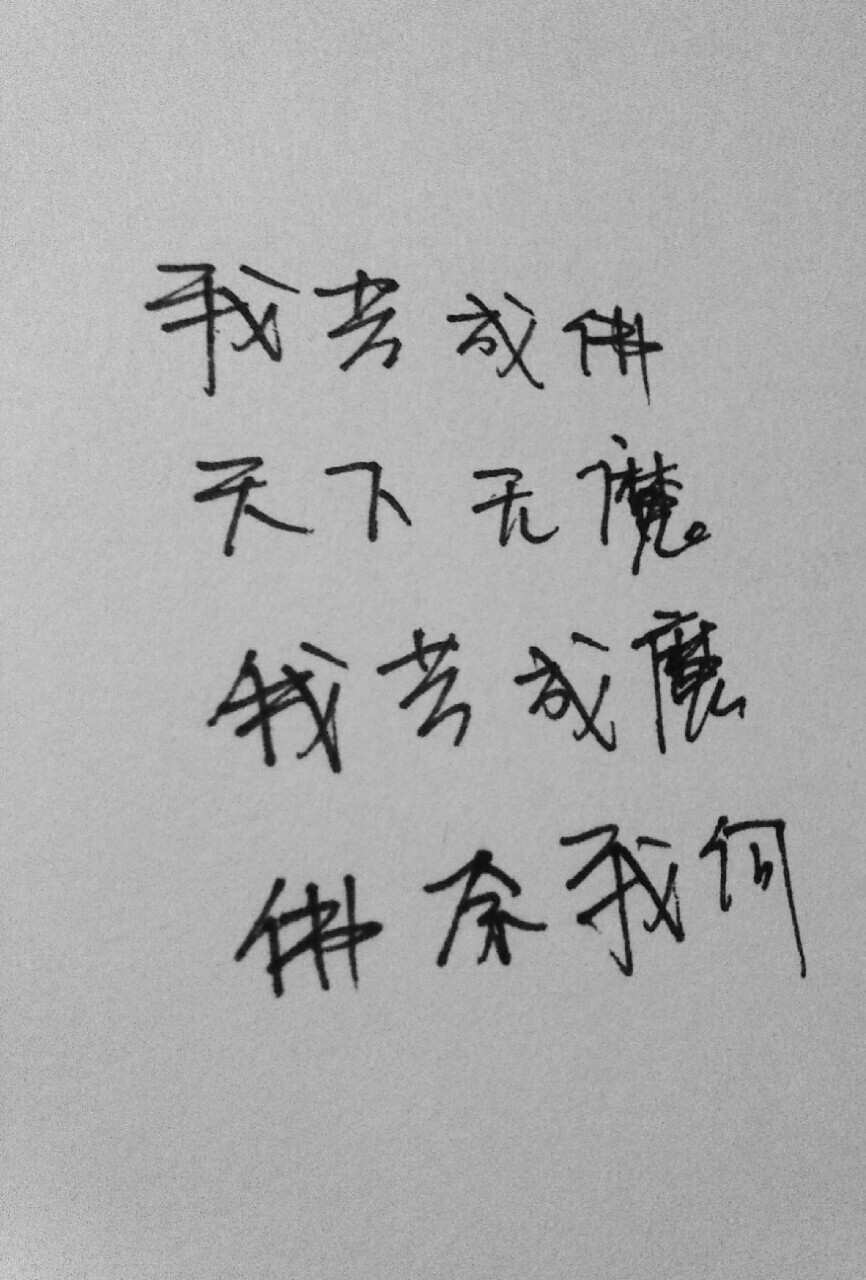 我若成佛
天下无魔。
我若成魔
佛奈我何